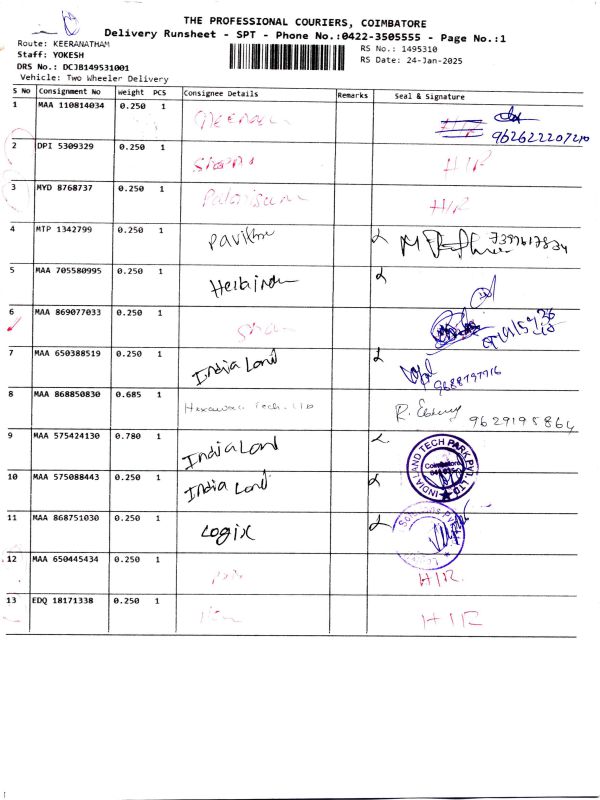 THE PROFESSIONAL COURIERS, COIMBATORE
Delivery Runsheet - SPT - Phone No.:0422-3505555 - Page No.:1
Route: KEERANATHAM
RS No.: 1495310
Staff: YOKESH
RS Date: 24-Jan-2025
DRS No.: DCJB149531001
Vehicle: Two Wheeler Delivery
S No Consignment No Weight PCS Consignee Details Remarks Seal & Signature
1 MAA 110814034 0.250 1 HIR
962622207210
2 DPI 5309329 0.250 1 HIR
3 MYD 8768737 0.250 1 HIR
4 MTP 1342799 0.250 1 7397617834
5 MAA 705580995 0.250 1
6 MAA 869077033 0.250 1
7 MAA 650388519 0.250 1 India Land
9688797716
8 MAA 868850830 0.685 1 Hexaware Tech. Ltd R.
9629195864
9 MAA 575424130 0.780 1 India Land INDIA LAND TECH PARK PVT. LTD. Coimbatore
10 MAA 575088443 0.250 1 India Land
11 MAA 868751030 0.250 1 Logix
12 MAA 650445434 0.250 1 HIR
13 EDQ 18171338 0.250 1 HIR